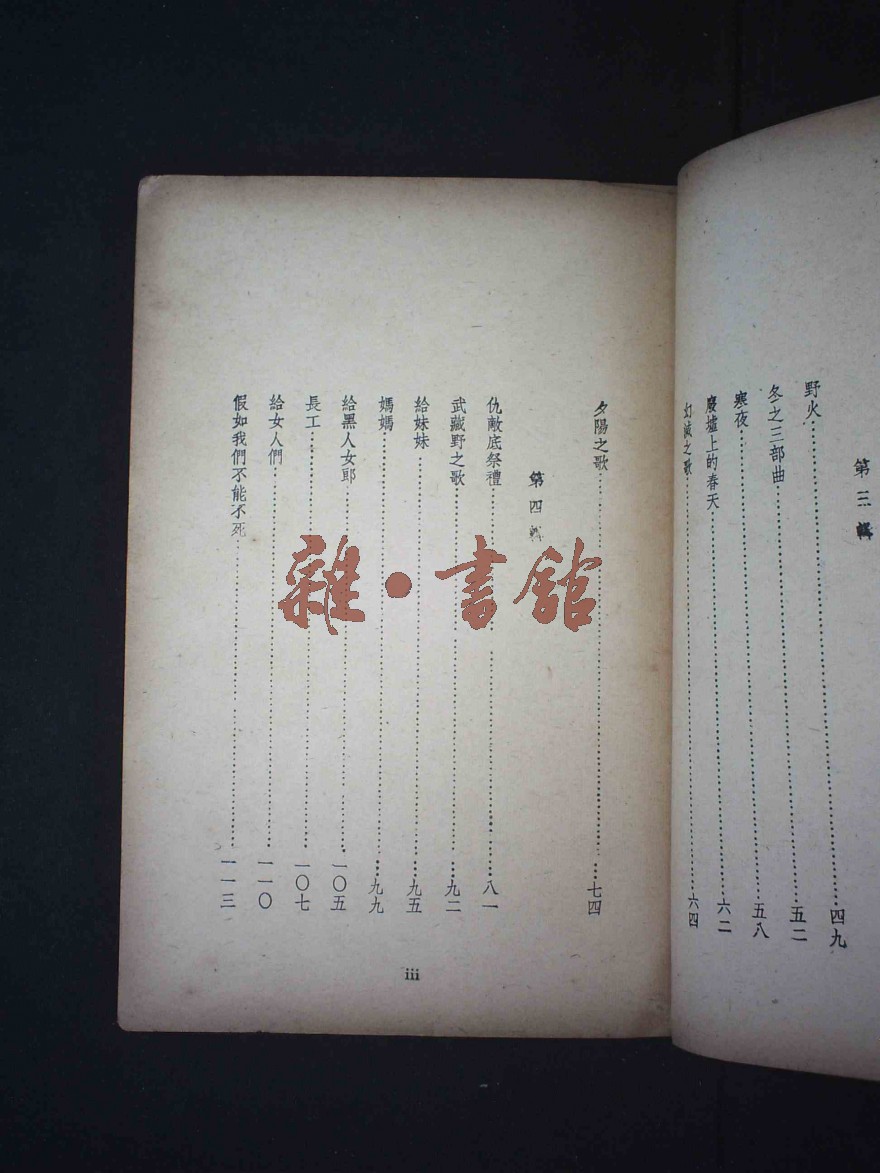 第三輯
野火……四九
冬之三部曲……五二
寒夜……五八
廢墟上的春天……六二
幻滅之歌……六四
夕陽之歌……七四
第四輯
仇敵底祭禮……八一
武藏野之歌……九二
給妹妹……九五
媽媽……九九
給黑人女郎……一〇五
長工……一〇七
給女人們……一一〇
假如我們不能不死……一一三
iii
雜·書館